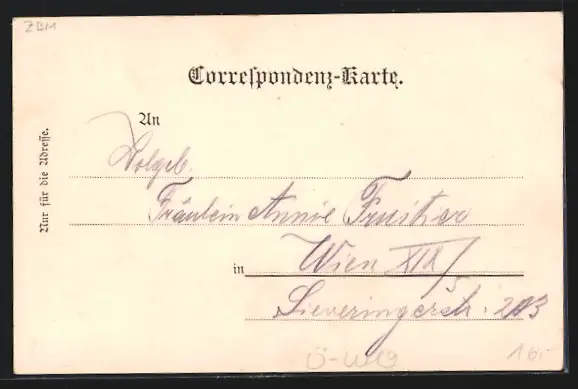 ZBM
Correspondenz-Karte.
Nur für die Adresse.
An
Wolgeb.
Fräulein Annie
in Wien XIX/5
Sieveringerstr. 203
Ö-W19